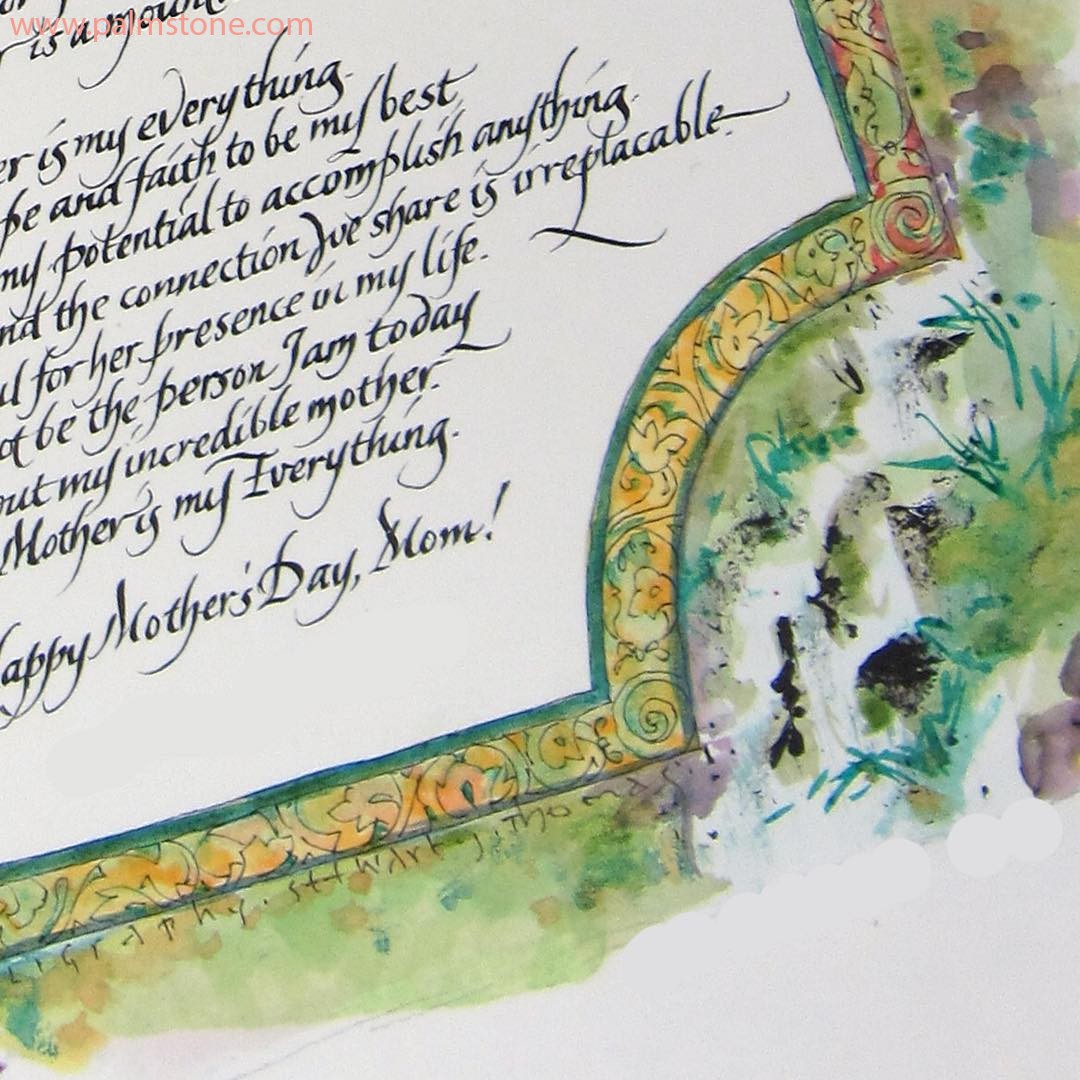 www.palmstone.com
is a
er is my everything.
pe and faith to be my best
my potential to accomplish anything.
nd the connection I've share is irreplacable.
ul for her presence in my life.
ot be the person I am today
out my incredible mother.
Mother is my Everything.
Happy Mother's Day, Mom!
ligraphy. stewart j. thomas